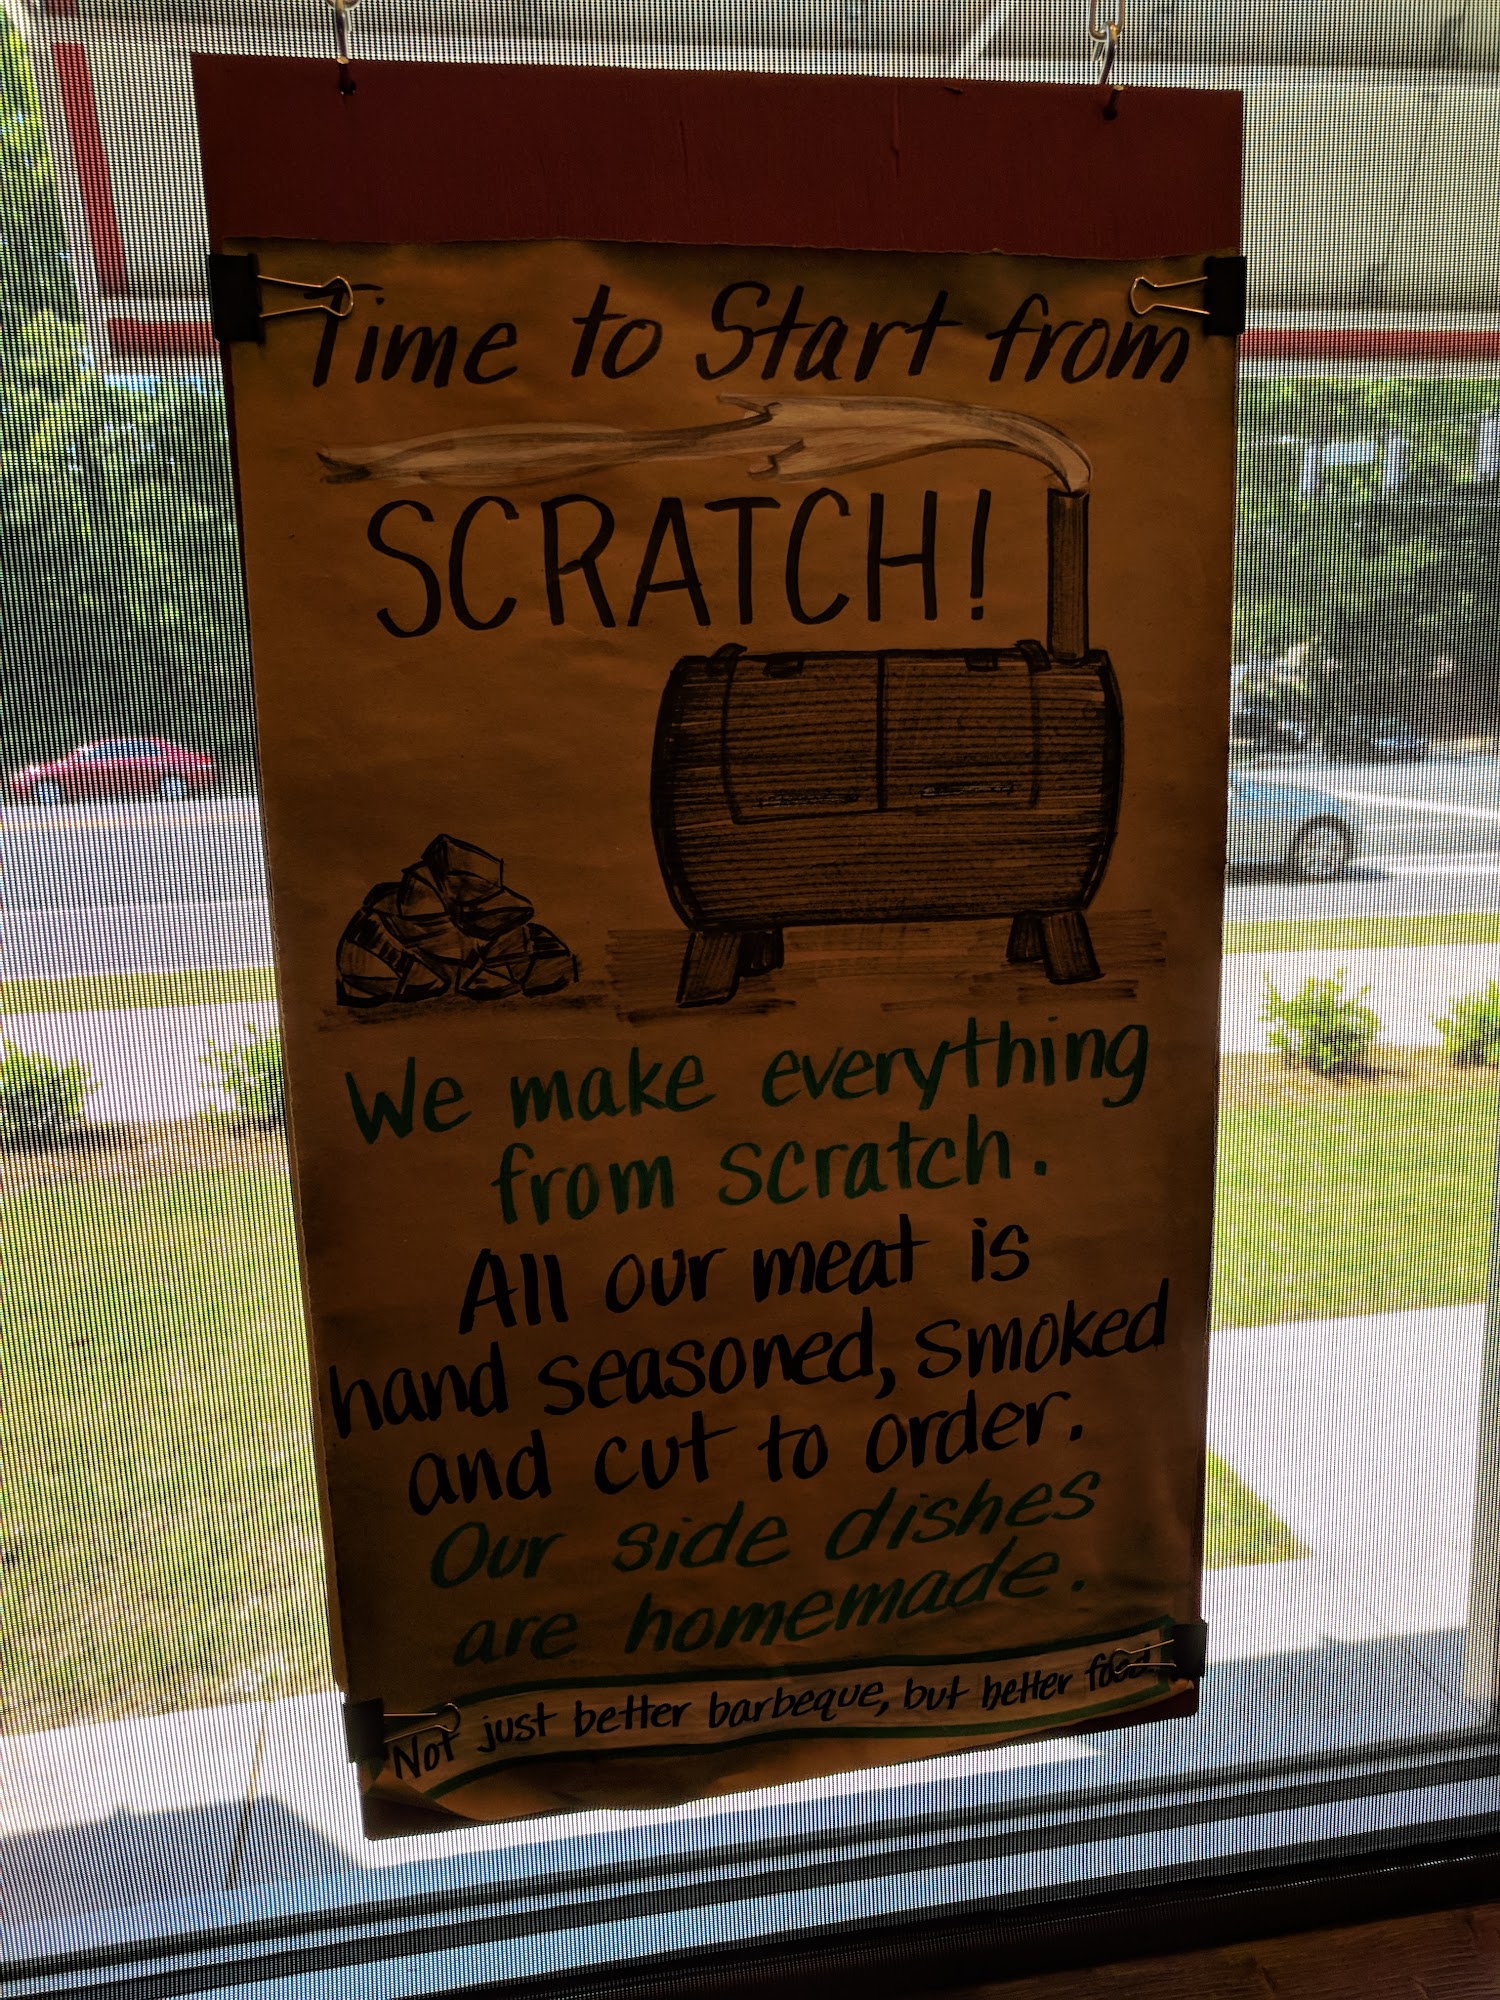 Time to Start from
SCRATCH!
We make everything
from scratch.
All our meat is
hand seasoned, smoked
and cut to order.
Our side dishes
are homemade.
Not just better barbeque, but better food.